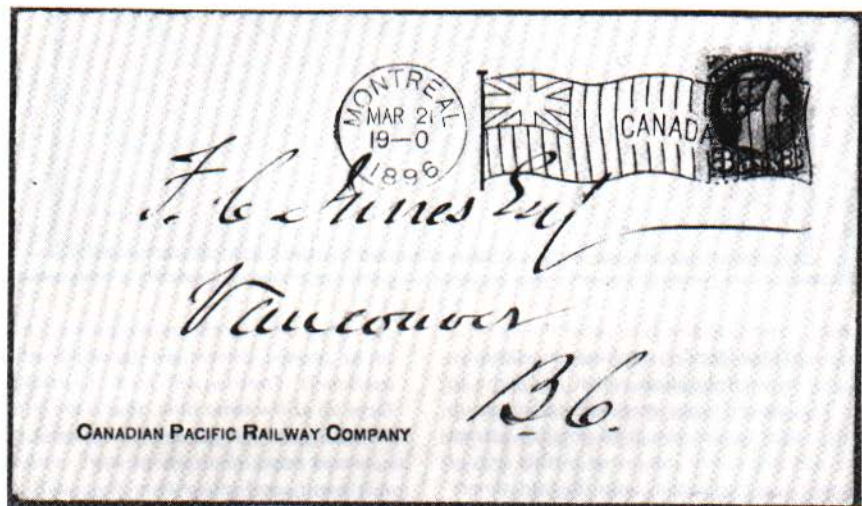 MONTREAL
MAR 21
19—0
1896
CANADA
F. C. Innes Esq
Vancouver
B.C.
CANADIAN PACIFIC RAILWAY COMPANY